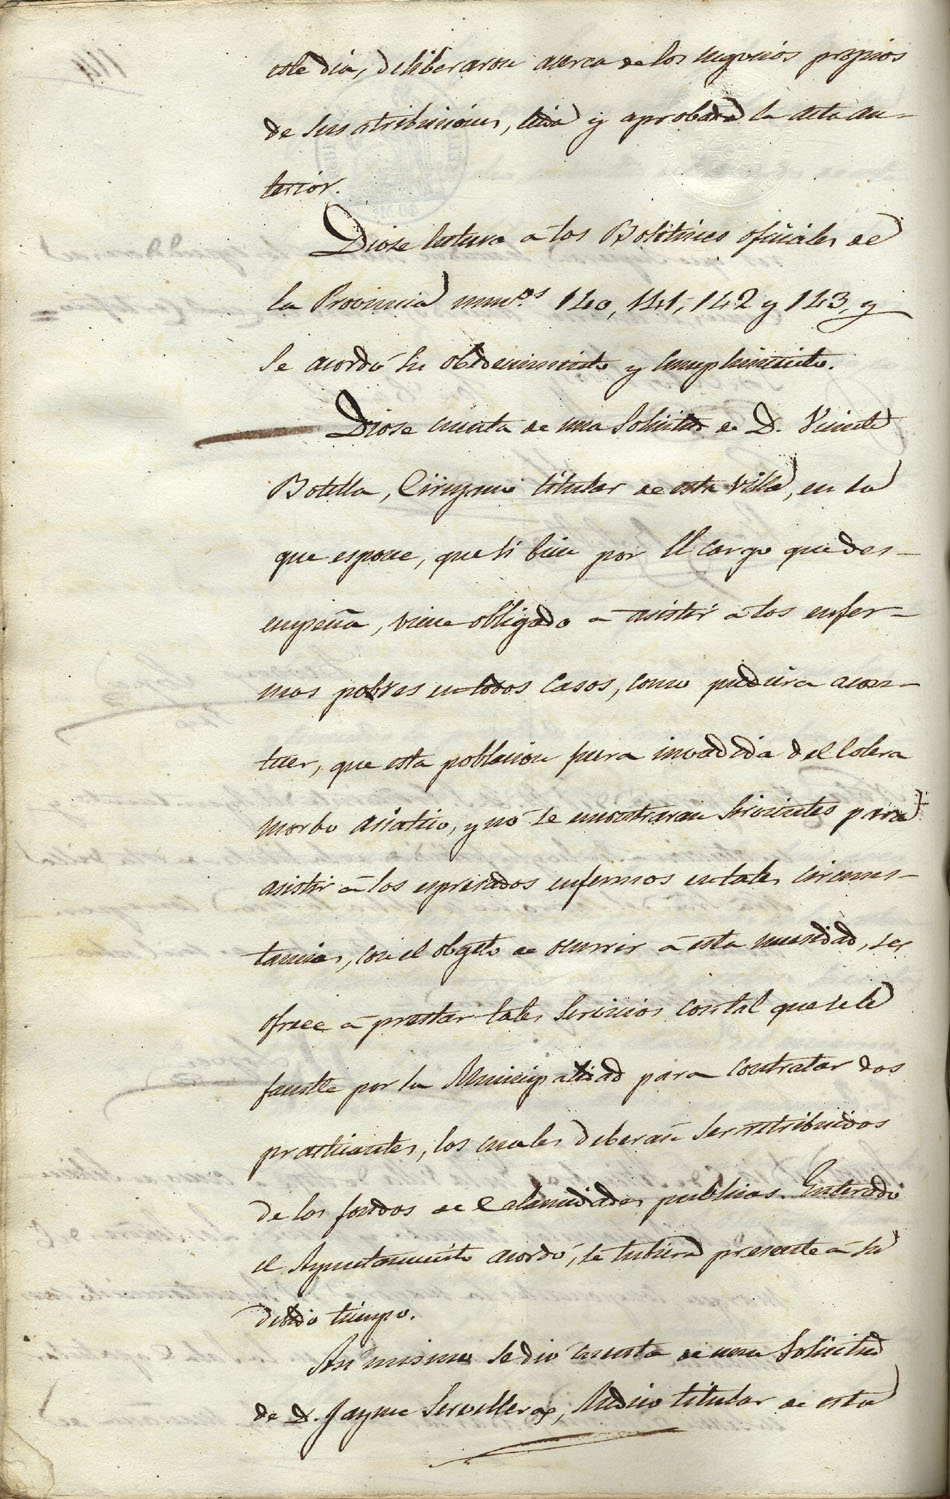 este dia, deliberaron acerca de los negocios propios
de sus atribuciones, leida y aprobada la acta an-
terior.
Diose lectura a los Boletines oficiales de
la Provincia numos 140, 141, 142 y 143, y
se acordó su obedecimiento y cumplimiento.
Diose cuenta de una solicitud de D. Vicente
Botella, Cirujano titular de esta Villa, en la
que espone, que si bien por el cargo que des-
empeña, viene obligado a asistir a los enfer-
mos pobres en todos casos, como pudiera acon-
tecer, que esta poblacion fuera invadida del Colera
morbo asiatico, y no se encontraran sirvientes para
asistir a los espresados enfermos en tales circuns-
tancias, con el obgeto de ocurrir a esta necesidad, se
ofrece a prestar tales servicios con tal que se le
faculte por la Municipalidad para contratar dos
practicantes, los cuales deberan ser retribuidos
de los fondos de Calamidades publicas. Enterado
el Ayuntamiento acordó, se tubiera presente a su
debido tiempo.
Asi mismo se dió cuenta de una solicitud
de D. Jayme Servillera, Medico titular de esta